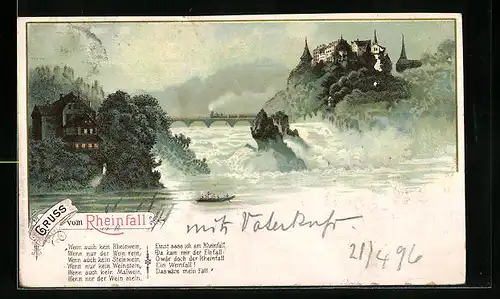 GRUSS
vom Rheinfall
mit Vaterkuss.
21/4 96
Wenn auch kein Rheinwein,
Wenn nur der Wein rein,
Wenn auch kein Steinwein,
Wenn nur kein Weinstein,
Wenn auch kein Maiwein,
Wenn nur der Wein mein.
Einst sass ich am Rheinfall,
Da kam mir der Einfall:
O wär doch der Rheinfall
Ein Weinfall!
Das wäre mein Fall!